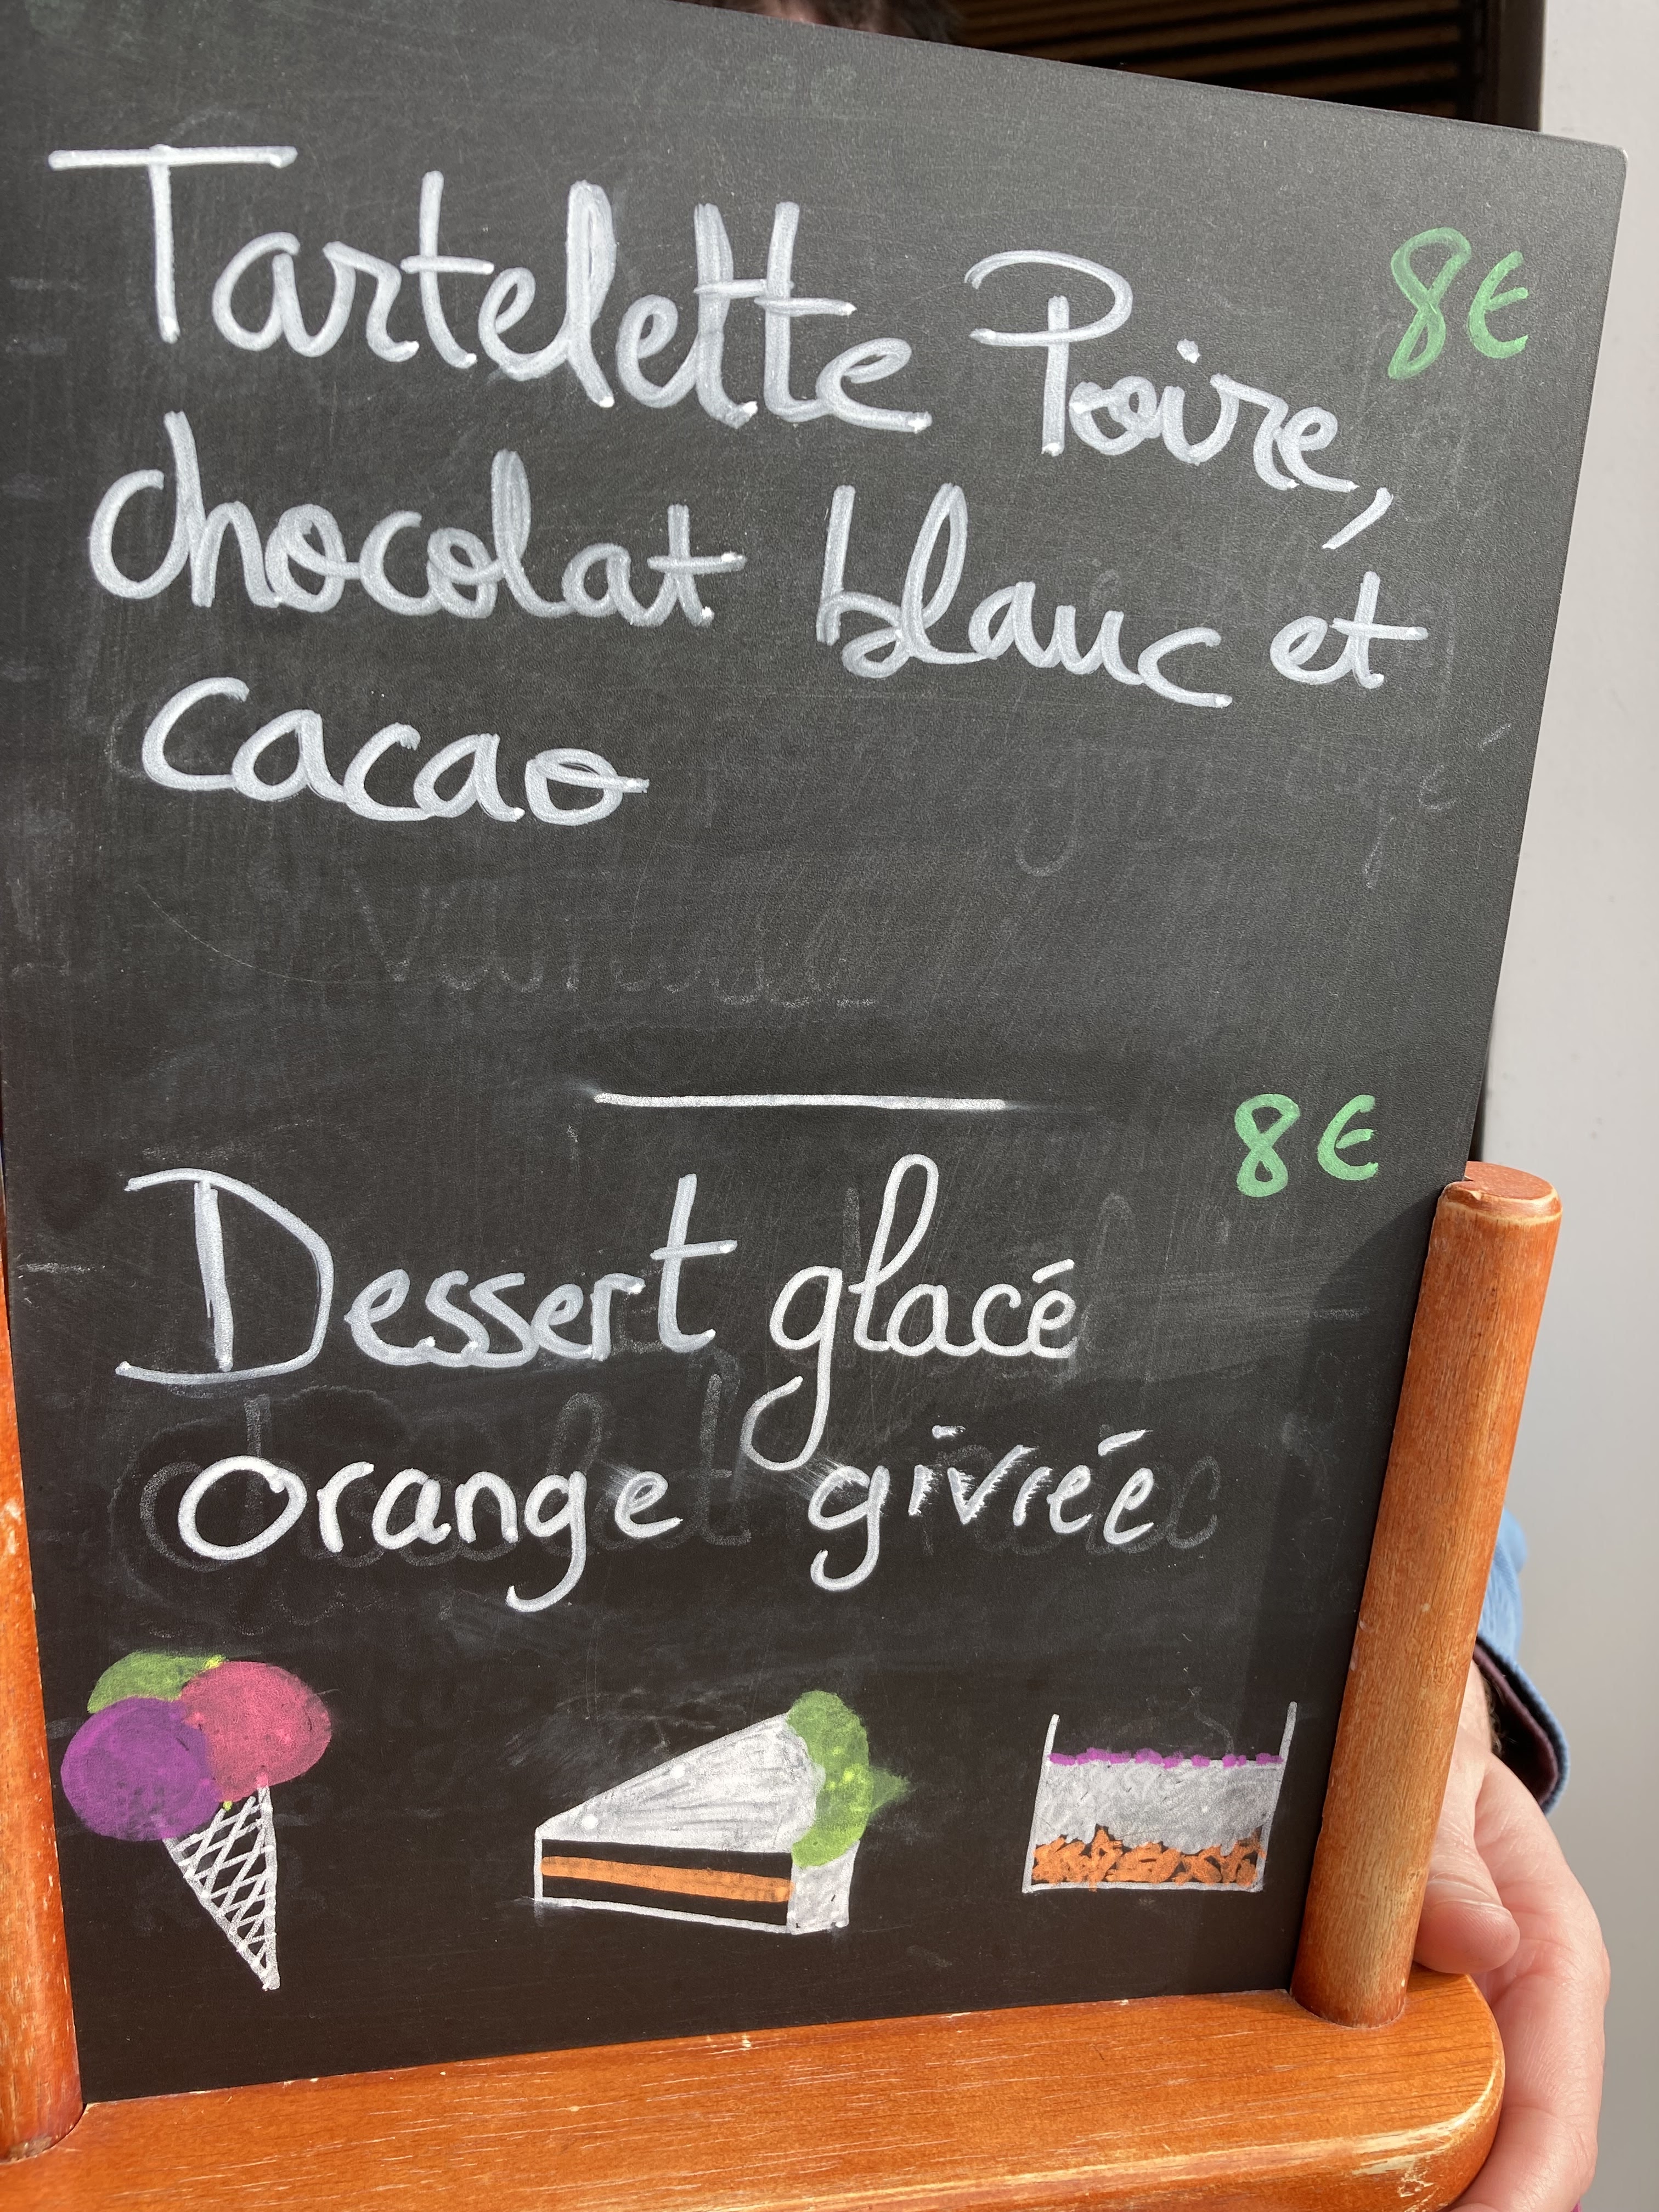 Tartelette Poire, 8€
chocolat blanc et
cacao
8€
Dessert glacé
orange givrée